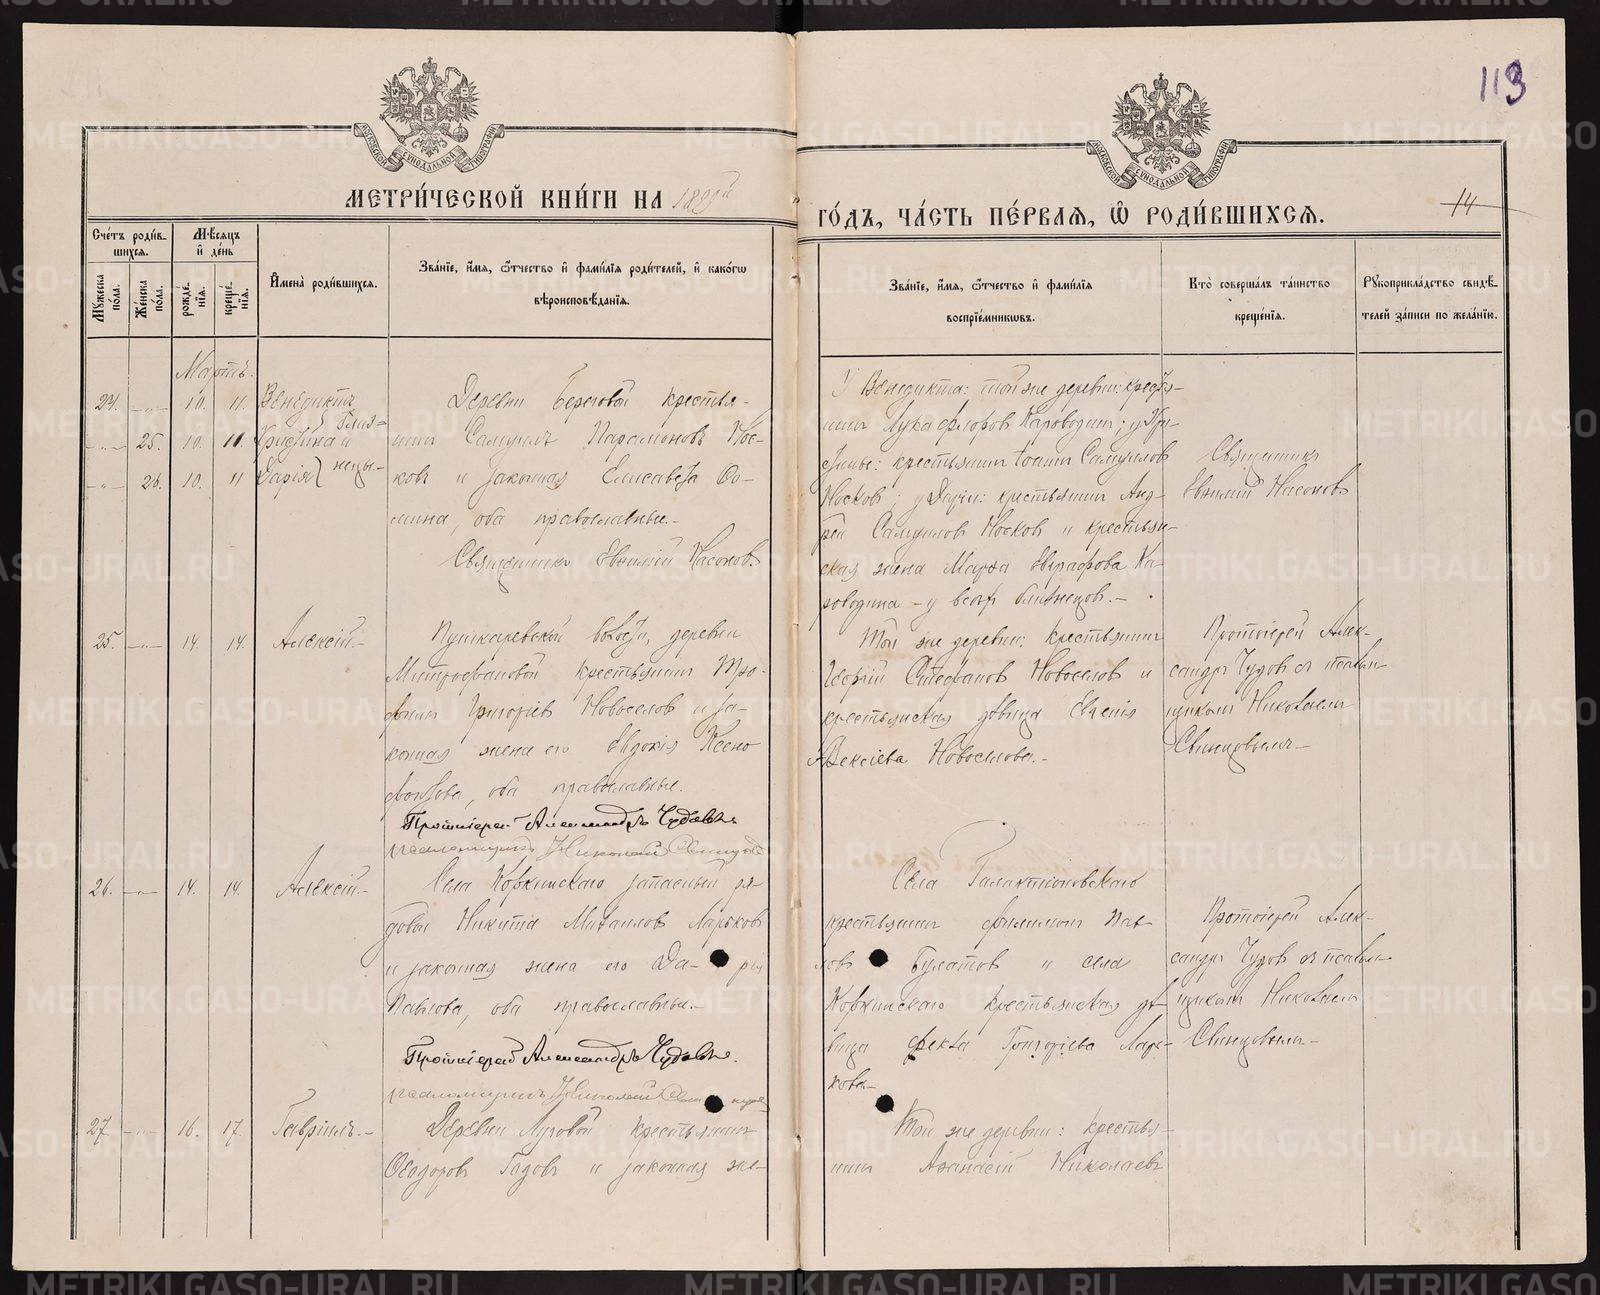 113
МЕТРИ́ЧЕСКОЙ КНИ́ГИ НА 189
ГО́ДЪ, ЧА́СТЬ ПЕ́РВАЯ, Ѡ РОДИ́ВШИХСЯ.
14
МОСКОВСКОЙ СУНОДАЛЬНОЙ ТИПОГРАФИИ
МОСКОВСКОЙ СУНОДАЛЬНОЙ ТИПОГРАФИИ
Сче́тъ роди́в-
шихся.
Мѣ́сяцъ
и҆ де́нь
Мꙋ́жеска по́ла.
Же́нска по́ла.
рожде́-
нїѧ.
креще́-
нїѧ.
И҆мена̀ роди́вшихся.
Зва́нїе, и҆́мѧ, ѻ҆́тчество и҆ фами́лїѧ роди́телей, и҆ како́гѡ
вѣроисповѣ́данїѧ.
Зва́нїе, и҆́мѧ, ѻ҆́тчество и҆ фами́лїѧ
воспрїе́мникѡвъ.
Кто̀ соверша́лъ та́инство
креще́нїѧ.
Рꙋкоприкла́дство свидѣ́-
телей за́писи по жела́нїю.
Мартъ.
24. -„- 10. 11. Венедиктъ
-„- 25. 10. 11. Христина и
-„- 26. 10. 11 Дарія
близ-
нецы.-
Деревни Береговой крестья-
нинъ Самуилъ Парамоновъ Нос-
ковъ и законная Елисавета Фо-
мина, оба православные.-
Священникъ Евѳимій Насоновъ.
У Венедикта: той же деревни: кресть-
янинъ Лука Флоровъ Караводинъ; у Хри-
стины: крестьянинъ Іоаннъ Самуиловъ
Носковъ; у Дарьи: крестьянинъ Анд-
рей Самуиловъ Носковъ и крестьян-
ская жена Марѳа Евграфова Ка-
раводина - у всѣхъ близнецовъ.-
Священникъ
Евѳимій Насоновъ
25. -„- 14. 14. Алексій.-
Пушкаревской волости, деревни
Митрофановой крестьянинъ Тро-
фимъ Григоріевъ Новоселовъ и за-
конная жена его Евдокія Ксено
фонтова, оба православные.
Протоіерей Александръ Чудовъ.
псаломщикъ Николай Свинцовъ
Той же деревни: крестьянинъ
Георгій Стефановъ Новоселовъ и
крестьянская дѣвица Евгенія
Алексіева Новоселова.-
Протоіерей Алек-
сандръ Чудовъ съ псалом-
щикомъ Николаемъ
Свинцовымъ-
26. -„- 14. 14. Алексій.-
Села Коркинскаго запасный ря-
довой Никита Михаиловъ Ларьковъ
и законная жена его Да- рья
Павлова, оба православные.-
Протоіерей Александръ Чудовъ.
псаломщикъ Николай Свинцовъ
Села Галактіоновскаго
крестьянинъ Филимонъ Пав-
ловъ Булатовъ и села
Коркинскаго крестьянская дѣ-
вица Фекла Григоріева Ларь-
кова.-
Протоіерей Алек-
сандръ Чудовъ съ псалом-
щикомъ Николаемъ
Свинцовымъ-
27. -„- 16. 17. Гавріилъ.-
Деревни Луговой крестьянинъ
Ѳеодоръ Годовъ и законная же-
Той же деревни: крестья-
нинъ Аѳанасій Николаевъ
METRIKI.GASO-URAL.RU